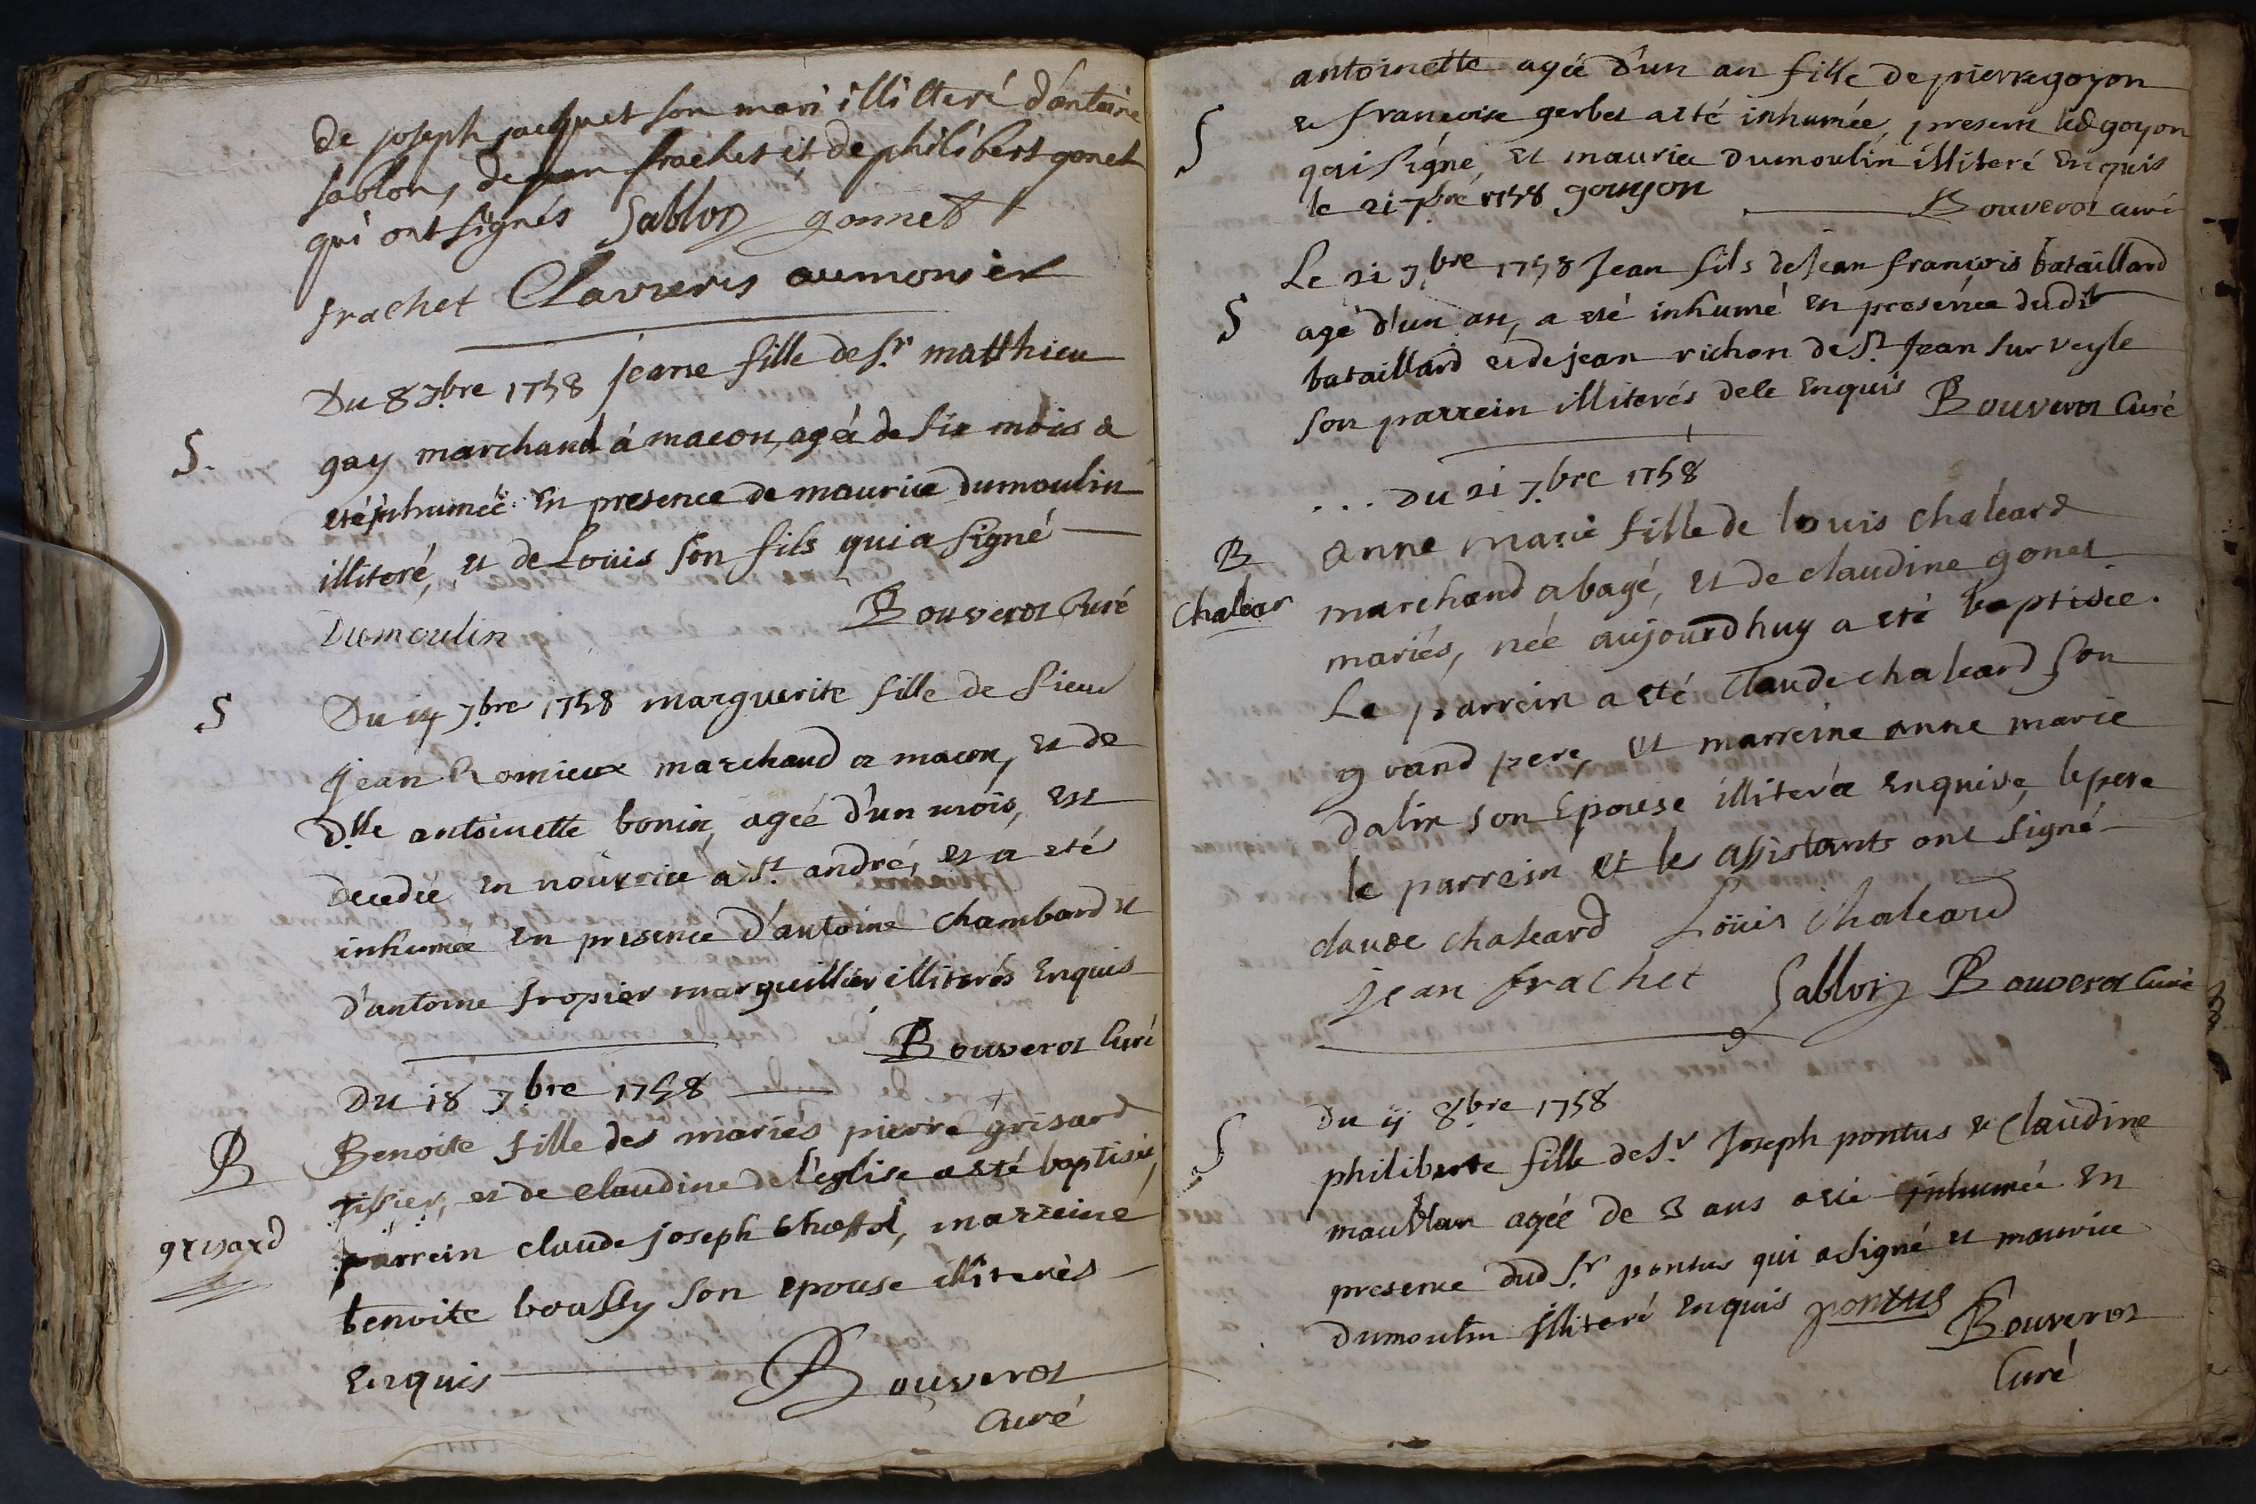 de joseph jacquet son mari illitteré d'antoine
sablon, de jean frachet et de philibert gonet
qui ont signés Sablon gonnet
frachet Clavieres aumonier
Du 8 7bre 1758 jeane fille de sr matthieu
S. gay marchand á macon, agéé de six mois a
eté inhumée en presence de maurice dumoulin
illiteré, et de Louis son fils qui a signé
Dumoulin Bouverot Curé
S Du 14 7bre 1758 marguerite fille de sieur
jean Romieux marchand a macon, et de
Dlle antoinette bonin, agéé d'un mois, est
decedée en nourrice a st andré, et a eté
inhumée en presence d'antoine chambard et
d'antoine tropier marguillier illiterés enquis
Bouverot Curé
Du 18 7bre 1758
B Benoite fille des mariés pierre grisard
tissier, et de claudine de l'église a eté baptisée,
grisard parrein claude joseph, marreine
benoite boussy son epouse illiterés
enquis Bouverot
Curé
antoinette agée d'un an fille de pierre goyon
S & francoise gerbet a eté inhumée, present led goyon
qui signe, et maurice dumoulin illiteré enquis
le 21 7bre 1758 goujon
Bouverot curé
Le 21 7bre 1758 Jean fils de jean françois bataillard
S agé d'un an, a eté inhumé en presence dudit
bataillard et de jean richon de St Jean sur veyle
son parrein illiterés de le enquis Bouverot Curé
... Du 21 7.bre 1758
B Anne marie fille de louis chaleard
Chalear marchand a bagé, et de claudine gonet
mariés, néé aujourdhuy a eté baptisée.
Le parrein a eté Claude chaleard son
grand pere, et marreine anne marie
dalin son Epouse illiterée enquise, le pere
le parrein et les assistants ont signé
claude chaleard Loüis Chaleard
jean frachet Sablon Bouverot Curé
Du 4 8bre 1758
S philiberte fille de Sr Joseph pontus & Claudine
agéé de 3 ans a eté inhumée en
presence dud Sr pontus qui a signé et maurice
dumoulin illiteré enquis pontus Bouverot
Curé